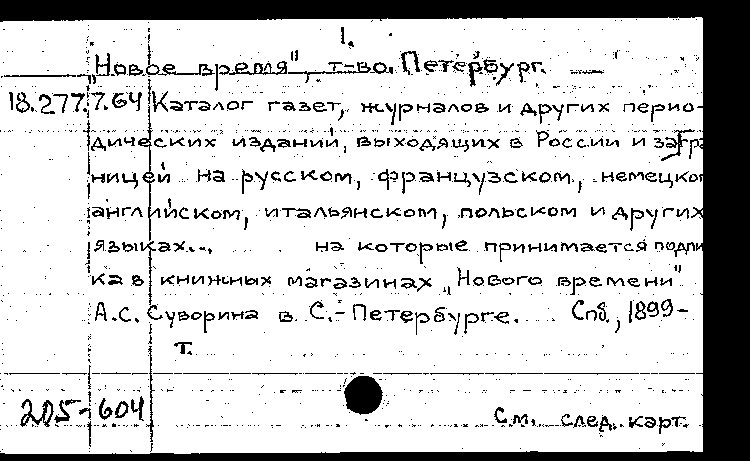 1.
„Новое время", т-во. Петербург.
18.277.7.64 Каталог газет, журналов и других перио-
дических изданий, выходящих в России и загра
ницей на русском, французском, немецком
английском, итальянском, польском и других
языках... на которые принимается подпи
ка в книжных магазинах „Нового времени"
А.С. Суворина в С.-Петербурге. Спб., 1899-
т.
205-604
См. след. карт.